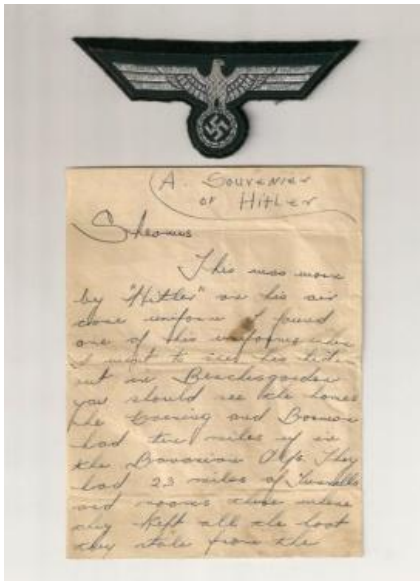 A. Souvenier
of Hitler
Sheamus
This was worn
by "Hitler" on his air
uniform I found
one of his uniforms when
I went to see his hide
out in Berchesgarden
you should see the homes
he Goering and Borman
had ten miles up in
the Bavarian Alps. They
had 23 miles of Tunnells
and rooms there where
they kept all the loot
they stole from the